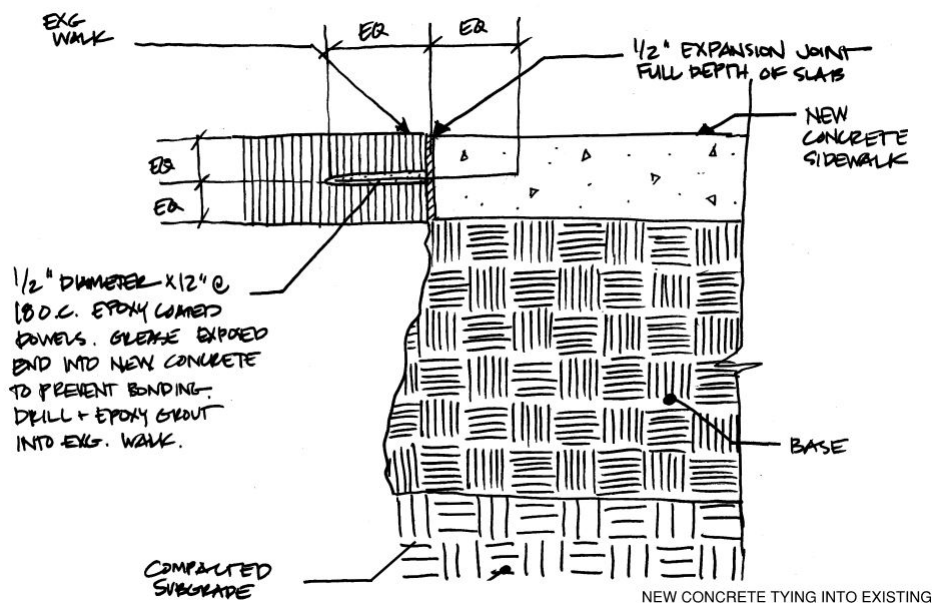 EXG
WALK
EQ
EQ
1/2" EXPANSION JOINT
FULL DEPTH OF SLAB
NEW
CONCRETE
SIDEWALK
EQ
EQ
1/2" DIAMETER X 12" @
18 O.C. EPOXY COATED
DOWELS. GREASE EXPOSED
END INTO NEW CONCRETE
TO PREVENT BONDING.
DRILL + EPOXY GROUT
INTO EXG. WALK.
BASE
COMPACTED
SUBGRADE
NEW CONCRETE TYING INTO EXISTING